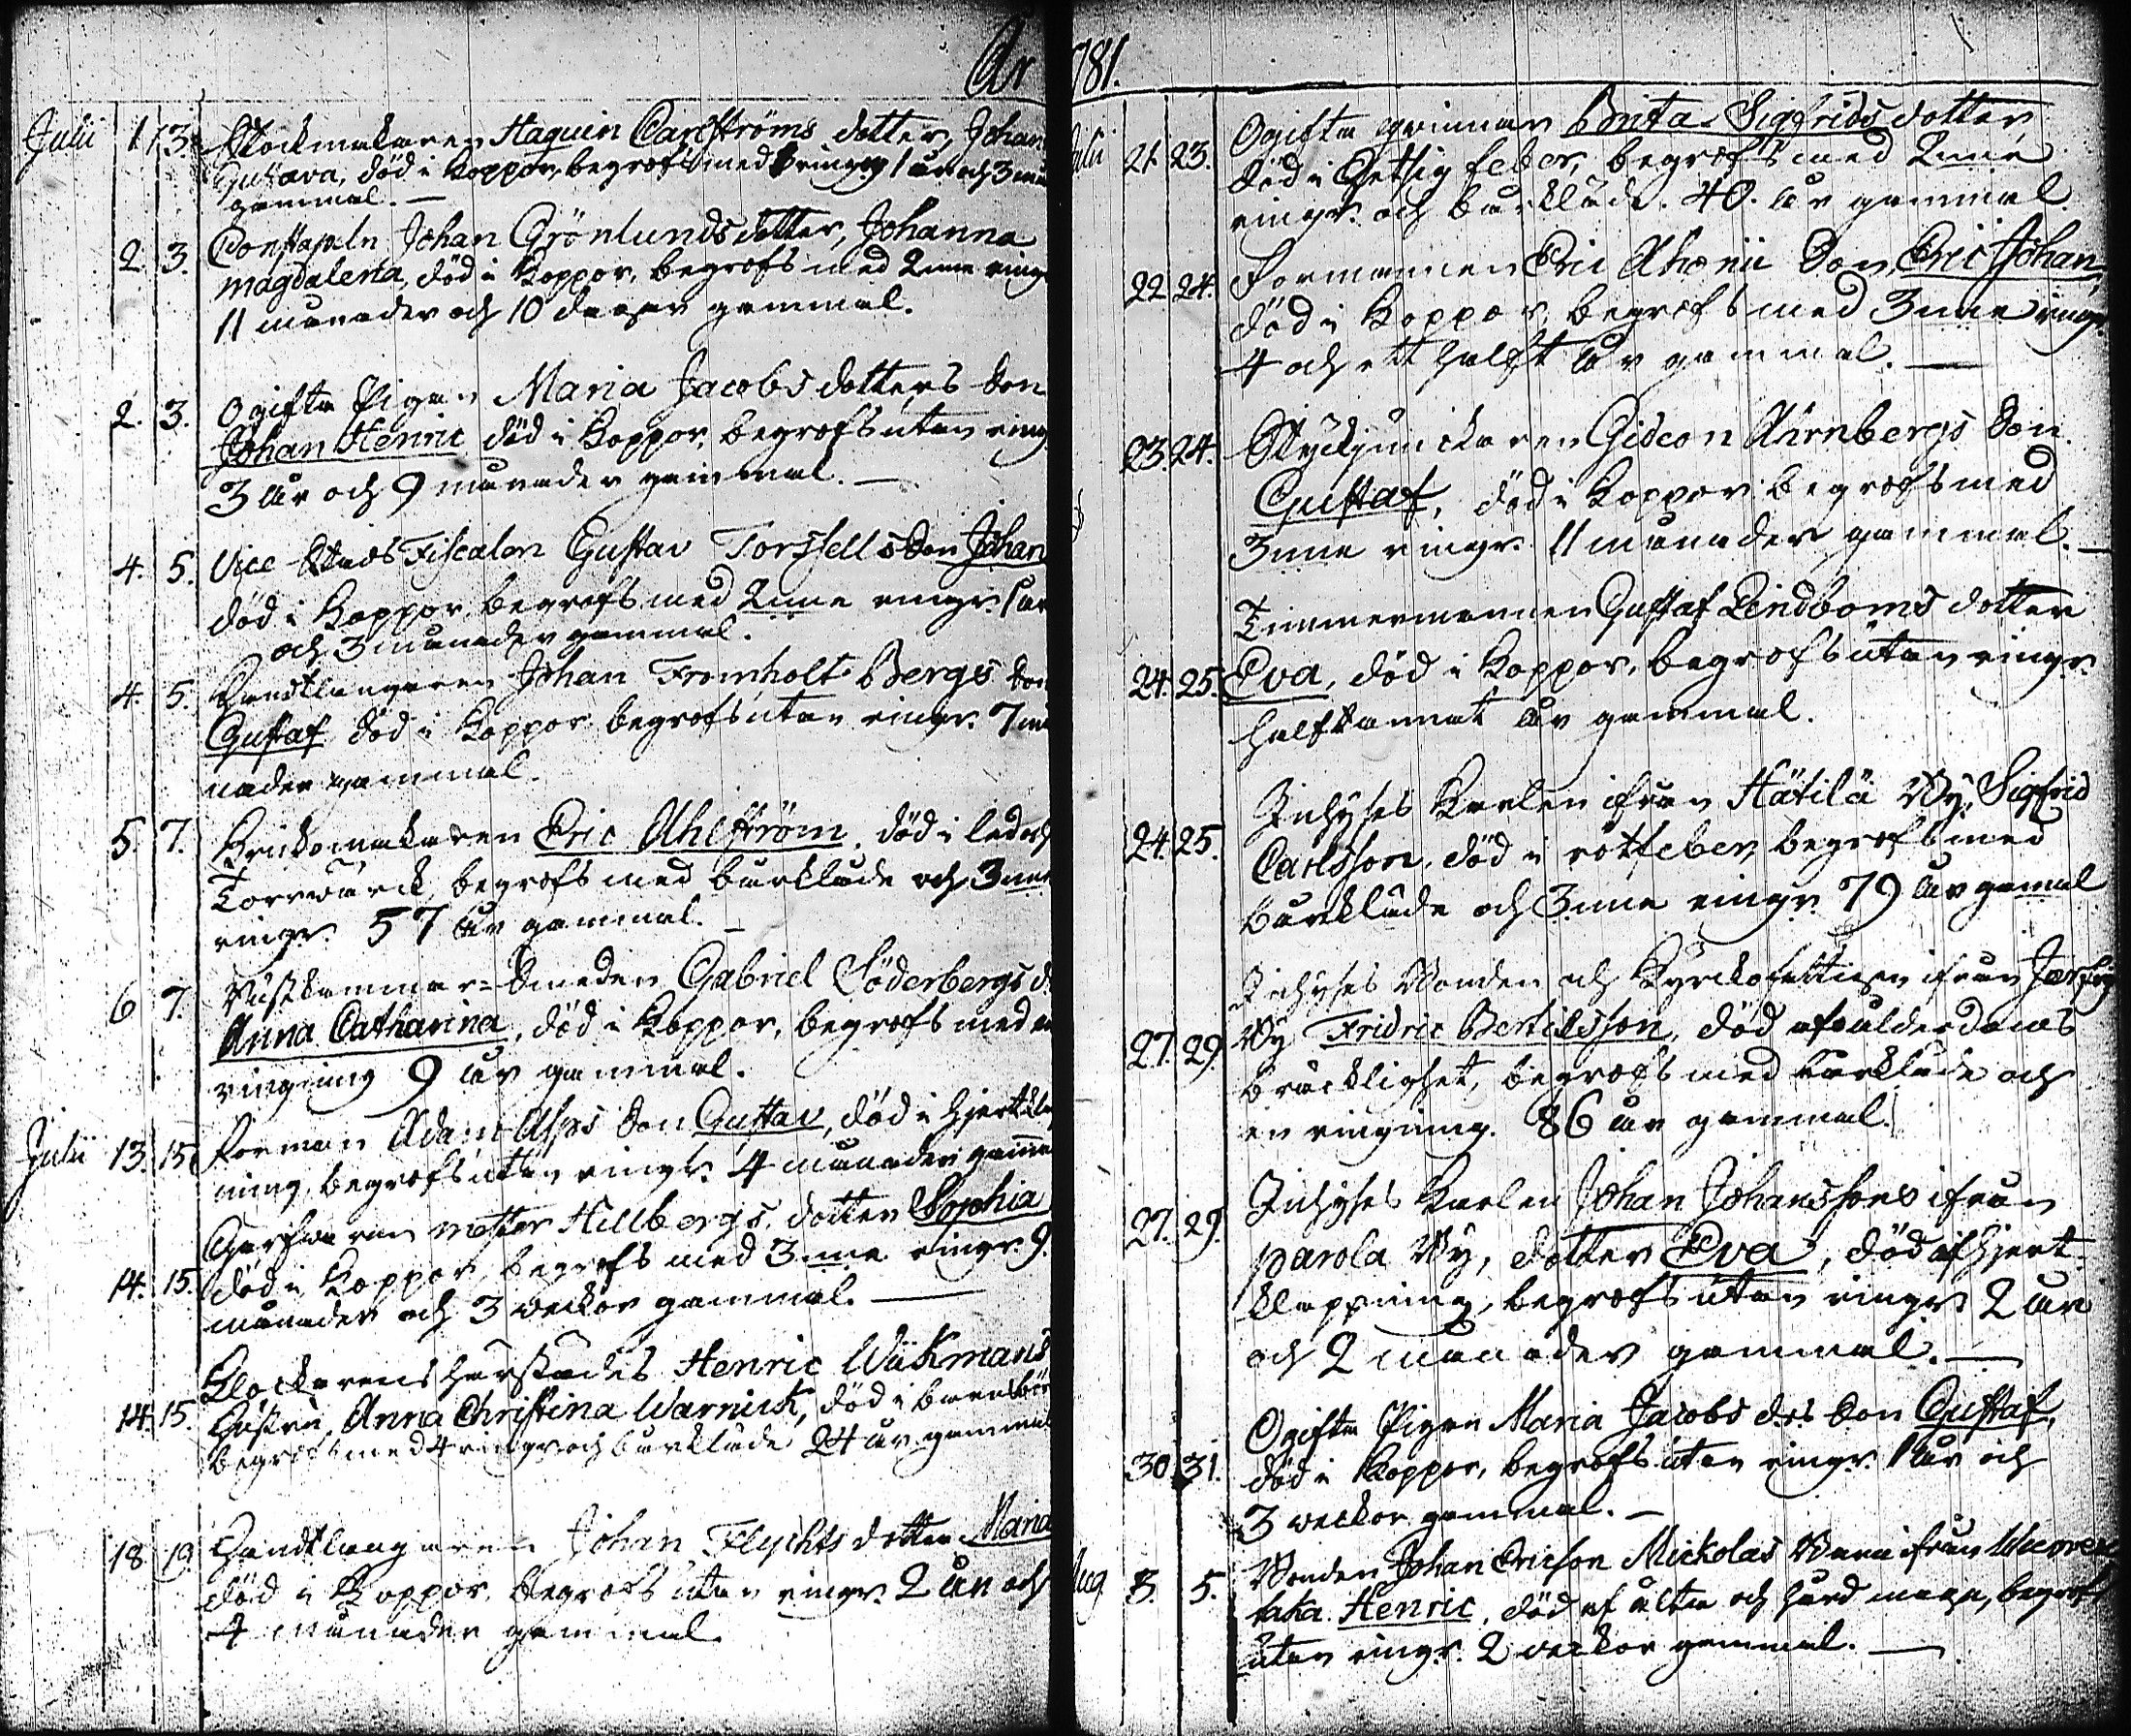 År 1781.
Julii 1. 3. Stockmakaren Haquin Carlströms dotter, Johan
Gustava, död i Koppor, begrofs med ringn 1 år och 3 må
gammal.
2. 3. Constapeln Johan Grönlunds dotter, Johanna
magdalena, död i Koppor, begrofs med 2nne ringr
11 månader och 10 dagar gammal.
2. 3. Ogifta Pigan Maria Jacobs dotters Son
Johan Henric död i Koppor, begrofs utan ring
3 år och 9 månader gammal.
4. 5. Vice Stads Fiscalen Gustav Torssells Son Johan
död i Koppor, begrofs med 2nne ringr. 1 år
och 3 månader gammal.
4. 5. Handtlangaren Johan Fromholt Bergs Son
Gustaf död i Koppor begrofs utan ringr. 7 må
nader gammal.
5. 7. Krukomakaren Eric Ahlström, död i led och
Torrwärck, begrofs med bårkläde och 3nne
ringr. 57 år gammal.
6 7. Rustkammar-Smeden Gabriel Söderbergs d.
Anna Catharina, död i Koppor, begrofs med en
ringning 9 år gammal.
Julii 13. 15 Forman Adam Alps Son Gustav, död i hjertkla
ning, begrofs utan ringr. 4 månader gamma
Garfwaren mester Hellbergs dotter Sophia
14. 15. död i Koppor, begrofs med 3nne ringr. 9.
månader och 3 weckor gammal.
Klockarens härstädes Henric Wiikmans
14. 15. Hustru, Anna Christina Warnick, död i barnsbör
begrofs med 4 ringr och bårkläde 24 år gammal
18 19 Handtlangaren Johan Flychts dotter Maria
död i Koppor, begrofs utan ringr. 2 år och
4 månader gammal.
Julii 21. 23. Ogifta qwinnan Brita Sigfrids dotter
död i Hetsig feber, begrofs med 2nne
ringr. och bårkläde. 40. år gammal.
22 24. Formannen Eric Ahonii Son, Eric Johan,
död i Koppor, begrofs med 3nne ringr.
4 och ett halft år gammal.
23. 24. Styckjunckaren Gideon Ahrnbergs Son.
Gustaf, död i Koppor begrofs med
3nne ringr. 11 månader gammal.
Timmermannen Gustaf Lindboms dotter
24. 25. Eva, död i Koppor, begrofs utan ringr.
halftannat år gammal.
Inhyses Karlen ifrån Hätilä By, Sigfrid
24. 25. Carlsson, död i rötfeber, begrofs med
bårkläde och 3nne ringr. 79 år gamal
Inhyses Bonden och Kyrckofattigen ifrån
27. 29. By Fridric Bertilsson, död af ålderdoms
bräcklighet, begrofs med bårkläde och
en ringning. 86 år gammal.
Inhyses Karlen Johan Johanssons ifrån
27. 29. parola By, dotter Eva, död af hjert-
klappning, begrofs utan ringr. 2 år
och 2 månader gammal.
Ogifta Pigan Maria Jacobs d:rs Son Gustaf,
30. 31. död i Koppor, begrofs utan ringr. 1 år och
3 weckor gammal.
Aug 3. 5. Bonden Johan Ericson Mickolas Barn ifrån
taka Henric, död af älta och hård mage, begrofs
utan ringr. 2 weckor gammal.